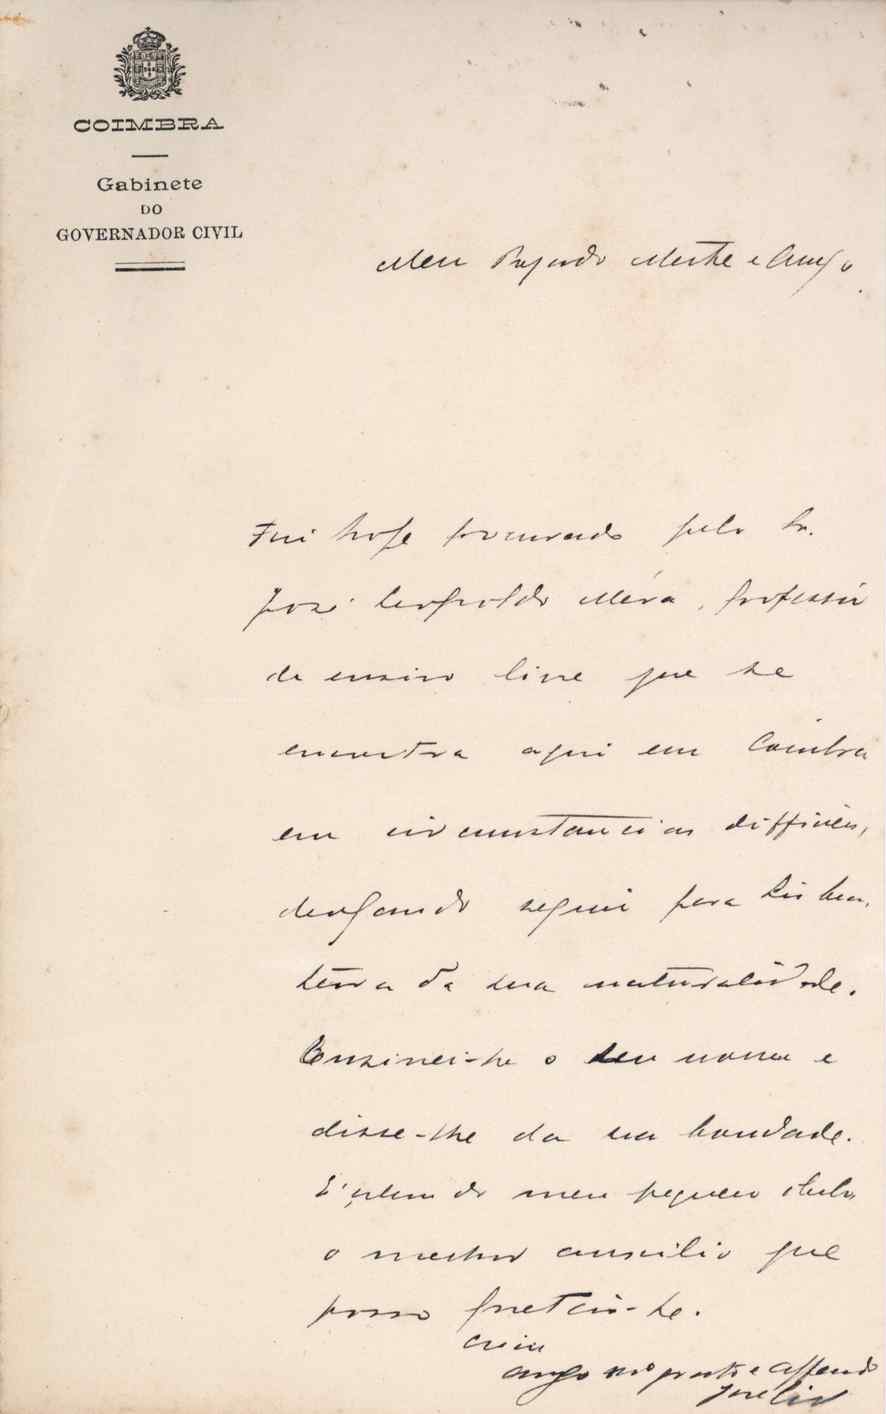 COIMBRA
Gabinete
DO
GOVERNADOR CIVIL
Meu Presado Mestre e Amigo
Fui hoje procurado pelo Sr.
José Leopoldo Méra, professor
de ensino livre que se
encontra aqui em Coimbra
em circumstancias difficeis,
desejando seguir para Lisboa,
terra da sua naturalidade.
Ensinei-lhe o seu nome e
disse-lhe da sua bondade.
É, alem do meu pequeno obulo
o melhor auxilio que
posso prestar-lhe.
amgo mto grato e